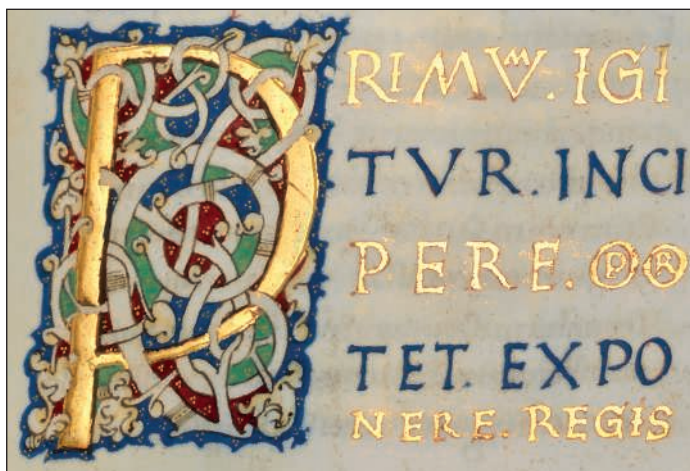 PRIMVM. IGI
TVR. INCI
PERE. OPOR
TET. EXPO
NERE. REGIS